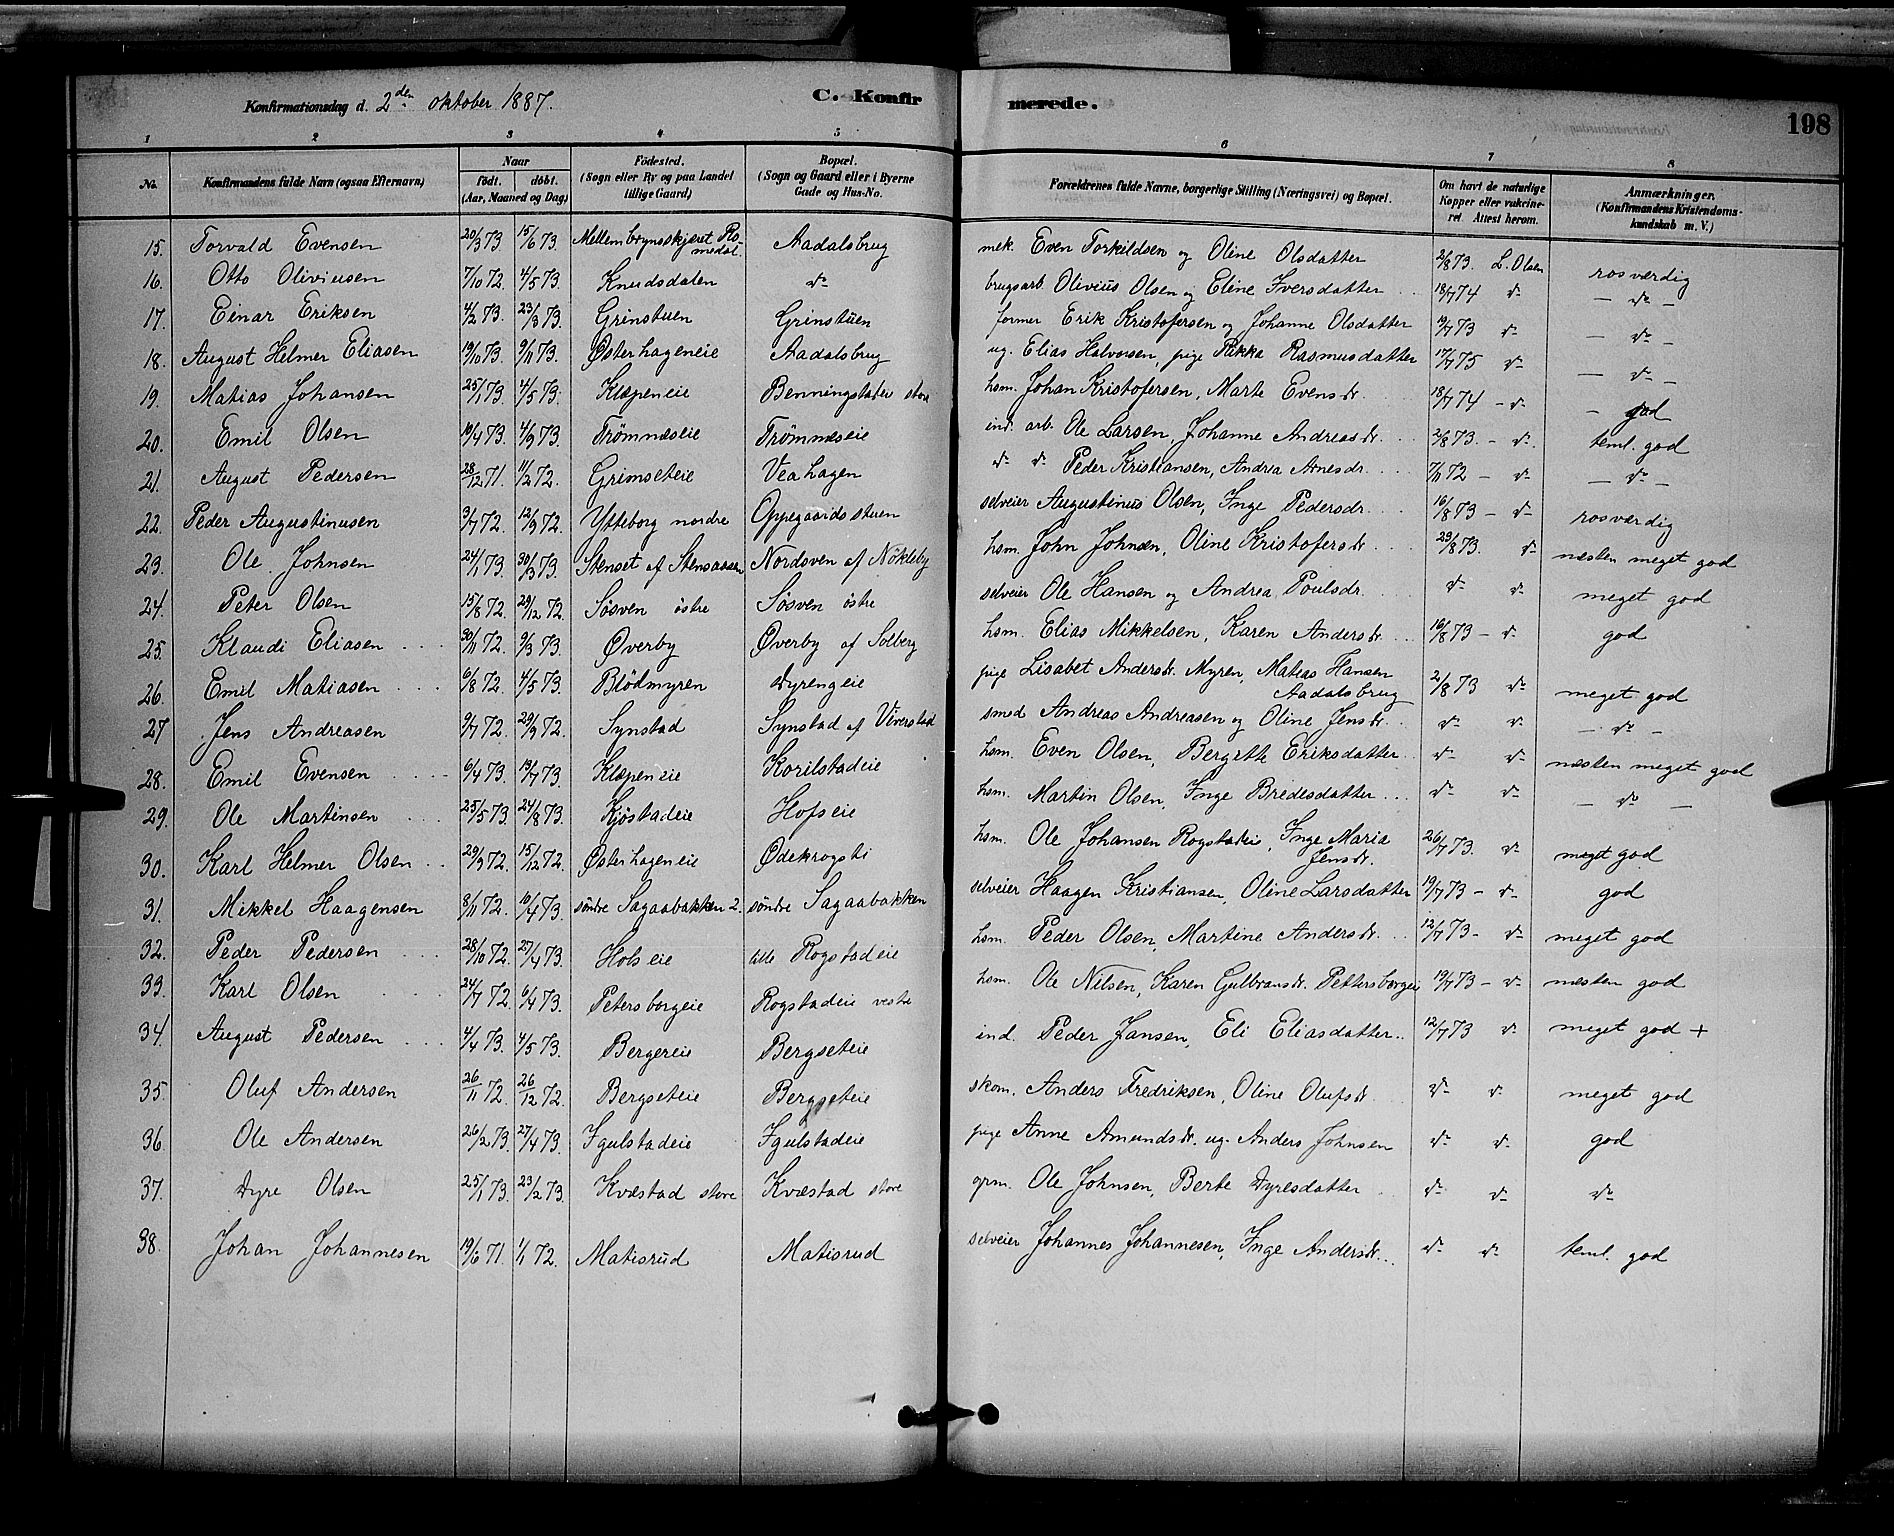 Konfirmationsdag d. 2den oktober 1887.
C. Konfirmerede.
198
1 2 3 4 5 6 7 8
No. | Konfirmandens fulde Navn (ogsaa Efternavn) | Naar födt. döbt. (Aar, Maaned og Dag) | Födested. (Sogn eller By og paa Landet tillige Gaard) | Bopæl. (Sogn og Gaard eller i Byerne Gade og Hus-No. | Forældrenes fulde Navne, borgerlige Stilling (Næringsvei) og Bopæl. | Om havt de naturlige Kopper eller vakcineret. Attest herom. | Anmærkninger. (Konfirmandens Kristendomskundskab m. V.)
15. Torvald Evensen 20/3 73. 15/6 73. Mellembrynsskjæret Romedal. Aadalsbrug mek. Even Torkildsen og Oline Olsdatter 2/8 73. L. Olsen rosværdig
16. Otto Oliviusen 7/10 72. 4/5 73. Knudsdalen do brugsarb. Olivius Olsen og Eline Iversdatter 18/7 74 do — do —
17. Einar Eriksen 4/2 73. 23/3 73. Grinstuen Grinstuen former Erik Kristofersen og Johanne Olsdatter 19/7 73 do — do —
18. August Helmer Eliasen 19/10 73. 9/11 73. Østerhageneie Aadalsbrug ug. Elias Halvorsen, pige Rikka Rasmusdatter 17/7 75 do — do —
19. Matias Johansen 25/1 73. 4/5 73. Klæpeneie Benningstadeie store hsm. Johan Kristofersen, Marte Evensdr. 18/7 74 — do — god
20. Emil Olsen 19/4 73. 4/9 73. Trømnæseie Trømnæseie ind. arb. Ole Larsen, Johanne Andreasdr. 2/8 73. — do teml. god
21. August Pedersen 28/12 71. 11/2 72. Grimseteie Veahagen do do Peder Kristiansen, Andrea Arnesdr. 7/11 72 — do — do —
22. Peder Augustinusen 3/7 72. 12/9 72. Ytteborg nordre Oppegaardsstuen selveier Augustinus Olsen, Inge Pedersdr. 16/8 73 — do rosværdig
23. Ole Johnsen 24/1 73. 30/3 73. Stenset af Stensaasen Nordsven af Nökleby hsm. John Johnsen, Oline Kristofersdr. 29/8 73. do næsten meget god
24. Peter Olsen 15/8 72. 29/12 72. Søsven östre Søsven östre selveier Ole Hansen og Andrea Poulsdr. do do meget god
25. Klaudi Eliasen 30/11 72. 9/3 73. Øverby Øverby af Solberg hsm. Elias Mikkelsen, Karen Andersdr. 16/8 73 — do god
26. Emil Matiasen 6/8 72. 4/5 73. Blödmyren Dyrengeie pige Lisabet Andersdr. Myren, Matias Hansen Aadalsbrug 2/8 73 do meget god
27 Jens Andreasen 9/7 72. 29/9 72. Synstad Synstad af Viverstad smed Andreas Andreasen og Oline Jensdr. do do — do —
28. Emil Evensen 6/4 73. 13/7 73. Klæpeneie Korilstadeie hsm. Even Olsen, Bergitte Eriksdatter do do næsten meget god
29. Ole Martinsen 25/5 73. 24/8 73. Kjöstadeie Hofseie hsm. Martin Olsen, Inge Bredesdatter do do — do —
30. Karl Helmer Olsen 29/9 72. 15/12 72. Østerhageneie Ødekrogsti hsm. Ole Johansen Rogstadeie, Inge Maria Jensdr. 26/7 73. do meget god
31. Mikkel Haagensen 8/11 72. 10/4 73. søndre Sagaabakken 2. søndre Sagaabakken selveier Haagen Kristiansen, Oline Larsdatter 19/7 73 — do god
32. Peder Pedersen 28/10 72. 27/4 73. Holseie lille Rogstadeie hsm. Peder Olsen, Martine Andersdr. 12/7 73 — do meget god
33. Karl Olsen 24/7 72. 6/4 73. Petersborgeie Rogstadeie vestre hsm. Ole Nilsen, Karen Gulbransdr. Pettersborgeie 19/7 73 — do næsten god
34. August Pedersen 4/4 73. 4/5 73. Bergereie Bergseteie ind. Peder Jansen, Eli Eliasdatter 12/7 73 do meget god +
35 Oluf Andersen 26/11 72. 26/12 72. Bergseteie Bergseteie skom. Anders Fredriksen, Oline Olufsdr. do do meget god
36 Ole Andersen 26/2 73. 27/4 73. Igulstadeie Igulstadeie pige Anne Amundsdr. ug. Anders Johnsen do do god
37. Dyre Olsen 25/1 73. 23/2 73. Kvæstad store Kvæstad store grm. Ole Johnsen, Berte Dyresdatter do do do
38. Johan Johannesen 19/6 71. 1/1 72. Matisrud Matisrud selveier Johannes Johannesen, Inge Andersdr. do do teml. god